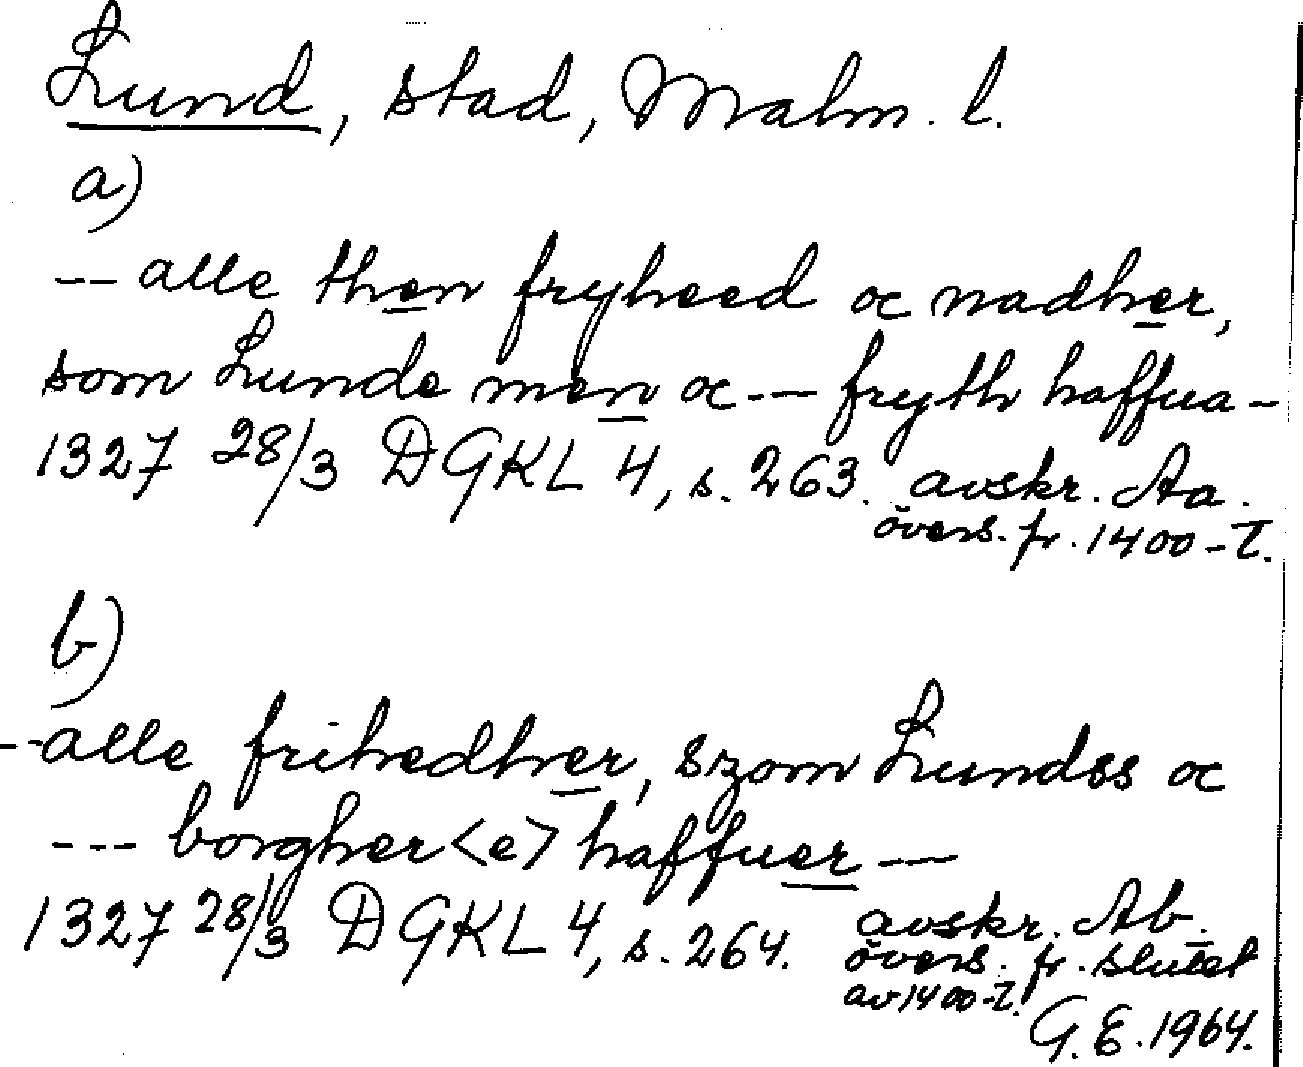 Lund, stad, Malm. l.
a)
--- alle then fryheed oc nadher,
som Lunde men oc --- fryth haffua -
1327 28/3 DGKL 4, s. 263. avskr. Aa.
övers. fr. 1400-t.
b)
-- alle frihedher, szom Lundss oc
--- borgher<e> haffuer ---
1327 28/3 DGKL 4, s. 264. avskr. Ab.
övers. fr. slutet
av 1400-t.
G. E. 1964.